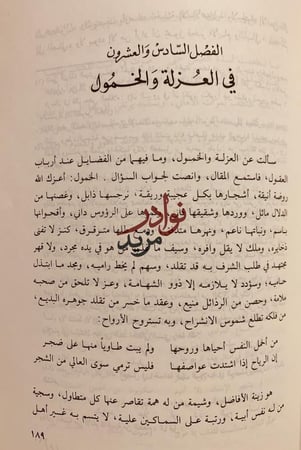 الفصل السادس والعشرون
في العزلة والخمول
سألت عن العزلة والخمول، وما فيهما من الفضايل عند أرباب
العقول، فاستمع المقال، وانصت لجواب السؤال. الخمول: أعزك الله
روضة أنيقة، أشجارها بكل عجيبة وريقة، نرجسها ذابل، وغصنها من
الدلال مائل، ووردها وشقيقها على الرؤوس داني، وأقحوانها
باسم، ونباتها ناعم، ونهرها مترقرق، كنز لا تفنى
ذخايره، وملك لا يقل وافره، وسيف ما في يده مجرد، ولا قهر
مجتهد في طلب الشرف به قد تقلد، وسهم لم يخط راميه، ومجد ما ابتذل
حاميه، وسؤدد لا يلازمه إلا ذوو الشهامة، وعز لا تلحق من صحبه
ملامة، وحصن من الرذائل منيع، وعقد ما خسر من تقلد جوهره البديع،
من فلكه تطلع شموس الانشراح، وبه تستروح الأرواح:
من أخمل النفس أحياها وروحها ولم يبت طاوياً منها على ضجر
إن الرياح إذا اشتدت عواصفها فليس ترمي سوى العالي من الشجر
هو زينة الأفاضل، وشيمة من له همة تقاصر عنها كل متطاول، وسجية
من له نفس أبية، ورتبة على السماكين علية، لا يتسم به غير أهل
١٨٩
نوادر
مزيد